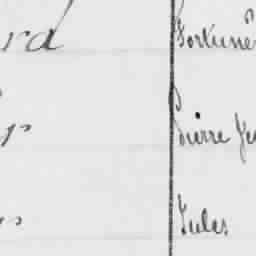 rd Fortuné
Pierre Je
Jules